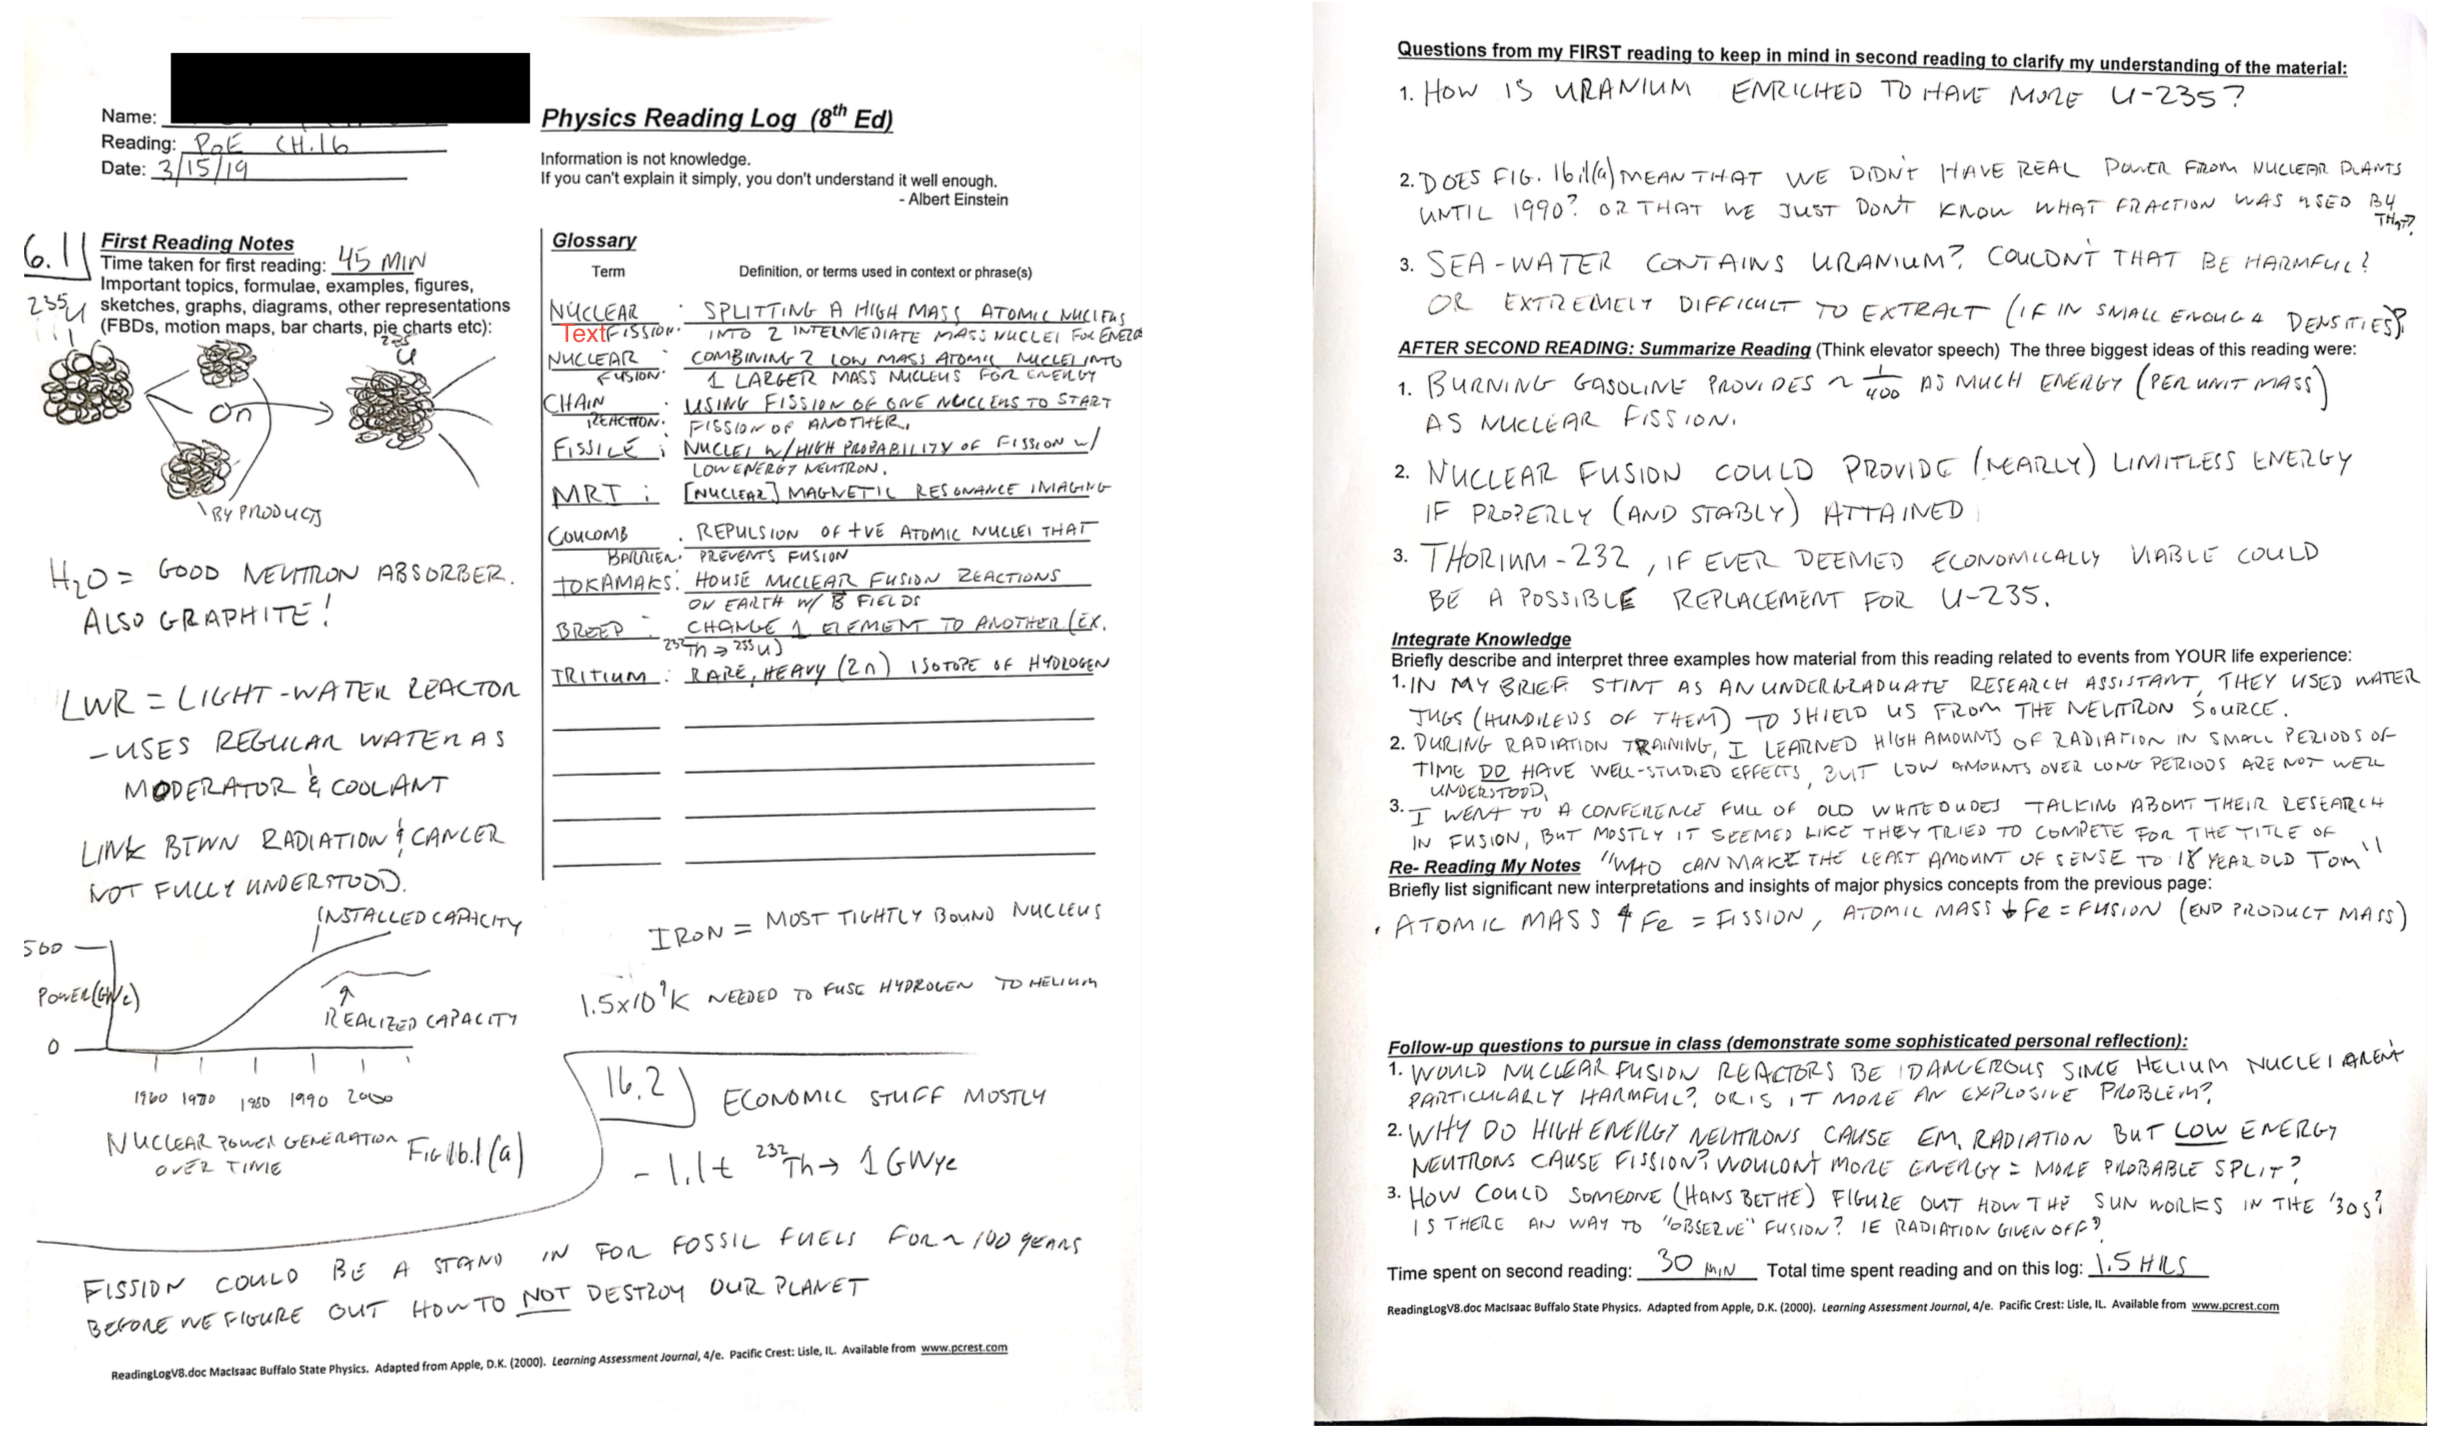 Name:
Reading: PoE CH.16
Date: 3/15/19
Physics Reading Log (8th Ed)
Information is not knowledge.
If you can't explain it simply, you don't understand it well enough.
- Albert Einstein
6.1
First Reading Notes
Time taken for first reading: 45 MIN
Important topics, formulae, examples, figures,
sketches, graphs, diagrams, other representations
(FBDs, motion maps, bar charts, pie charts etc):
235U
235U
0n
BYPRODUCTS
H2O = GOOD NEUTRON ABSORBER.
ALSO GRAPHITE!
LWR = LIGHT-WATER REACTOR
- USES REGULAR WATER AS
MODERATOR & COOLANT
LINK BTWN RADIATION & CANCER
NOT FULLY UNDERSTOOD.
INSTALLED CAPACITY
500
POWER
REALIZED CAPACITY
0
1960 1970 1980 1990 2000
NUCLEAR POWER GENERATION
OVER TIME
FIG 16.1(a)
Glossary
Term Definition, or terms used in context or phrase(s)
NUCLEAR : SPLITTING A HIGH MASS ATOMIC NUCLEUS
Text FISSION. INTO 2 INTERMEDIATE MASS NUCLEI FOR ENERG
NUCLEAR : COMBINING 2 LOW MASS ATOMIC NUCLEI INTO
FUSION. 1 LARGER MASS NUCLEUS FOR ENERGY
CHAIN : USING FISSION OF ONE NUCLEUS TO START
REACTION. FISSION OF ANOTHER.
FISSILE : NUCLEI W/HIGH PROBABILITY OF FISSION W/
LOW ENERGY NEUTRON.
MRI : [NUCLEAR] MAGNETIC RESONANCE IMAGING
COULOMB : REPULSION OF +VE ATOMIC NUCLEI THAT
BARRIER. PREVENTS FUSION
TOKAMAKS: HOUSE NUCLEAR FUSION REACTIONS
ON EARTH W/ B FIELDS
BREED : CHANGE 1 ELEMENT TO ANOTHER (EX.
232Th → 233U)
TRITIUM : RARE, HEAVY (2n) ISOTOPE OF HYDROGEN
IRON = MOST TIGHTLY BOUND NUCLEUS
1.5x10⁹K NEEDED TO FUSE HYDROGEN TO HELIUM
16.2
ECONOMIC STUFF MOSTLY
- 1.1t 232Th → 1 GWye
FISSION COULD BE A STAND IN FOR FOSSIL FUELS FOR ~ 100 YEARS
BEFORE WE FIGURE OUT HOW TO NOT DESTROY OUR PLANET
ReadingLogV8.doc MacIsaac Buffalo State Physics. Adapted from Apple, D.K. (2000). Learning Assessment Journal, 4/e. Pacific Crest: Lisle, IL. Available from www.pcrest.com
Questions from my FIRST reading to keep in mind in second reading to clarify my understanding of the material:
1. HOW IS URANIUM ENRICHED TO HAVE MORE U-235?
2. DOES FIG. 16.1(a) MEAN THAT WE DIDN'T HAVE REAL POWER FROM NUCLEAR PLANTS
UNTIL 1990? OR THAT WE JUST DON'T KNOW WHAT FRACTION WAS USED BY
THAT?
3. SEA-WATER CONTAINS URANIUM? COULDN'T THAT BE HARMFUL?
OR EXTREMELY DIFFICULT TO EXTRACT (IF IN SMALL ENOUGH DENSITIES)?
AFTER SECOND READING: Summarize Reading (Think elevator speech) The three biggest ideas of this reading were:
1. BURNING GASOLINE PROVIDES ~ 1/400 AS MUCH ENERGY (PER UNIT MASS)
AS NUCLEAR FISSION.
2. NUCLEAR FUSION COULD PROVIDE (NEARLY) LIMITLESS ENERGY
IF PROPERLY (AND STABLY) ATTAINED
3. THORIUM-232, IF EVER DEEMED ECONOMICALLY VIABLE COULD
BE A POSSIBLE REPLACEMENT FOR U-235.
Integrate Knowledge
Briefly describe and interpret three examples how material from this reading related to events from YOUR life experience:
1. IN MY BRIEF STINT AS AN UNDERGRADUATE RESEARCH ASSISTANT, THEY USED WATER
JUGS (HUNDREDS OF THEM) TO SHIELD US FROM THE NEUTRON SOURCE.
2. DURING RADIATION TRAINING, I LEARNED HIGH AMOUNTS OF RADIATION IN SMALL PERIODS OF
TIME DO HAVE WELL-STUDIED EFFECTS, BUT LOW AMOUNTS OVER LONG PERIODS ARE NOT WELL
UNDERSTOOD.
3. I WENT TO A CONFERENCE FULL OF OLD WHITE DUDES TALKING ABOUT THEIR RESEARCH
IN FUSION, BUT MOSTLY IT SEEMED LIKE THEY TRIED TO COMPETE FOR THE TITLE OF
Re- Reading My Notes "WHO CAN MAKE THE LEAST AMOUNT OF SENSE TO 18 YEAR OLD TOM"
Briefly list significant new interpretations and insights of major physics concepts from the previous page:
· ATOMIC MASS ↑ Fe = FISSION, ATOMIC MASS ↓ Fe = FUSION (END PRODUCT MASS)
Follow-up questions to pursue in class (demonstrate some sophisticated personal reflection):
1. WOULD NUCLEAR FUSION REACTORS BE DANGEROUS SINCE HELIUM NUCLEI AREN'T
PARTICULARLY HARMFUL? OR IS IT MORE AN EXPLOSIVE PROBLEM?
2. WHY DO HIGH ENERGY NEUTRONS CAUSE EM. RADIATION BUT LOW ENERGY
NEUTRONS CAUSE FISSION? WOULDN'T MORE ENERGY = MORE PROBABLE SPLIT?
3. HOW COULD SOMEONE (HANS BETHE) FIGURE OUT HOW THE SUN WORKS IN THE '30s?
IS THERE AN WAY TO "OBSERVE" FUSION? IE RADIATION GIVEN OFF?
Time spent on second reading: 30 MIN Total time spent reading and on this log: 1.5 HRS
ReadingLogV8.doc MacIsaac Buffalo State Physics. Adapted from Apple, D.K. (2000). Learning Assessment Journal, 4/e. Pacific Crest: Lisle, IL. Available from www.pcrest.com